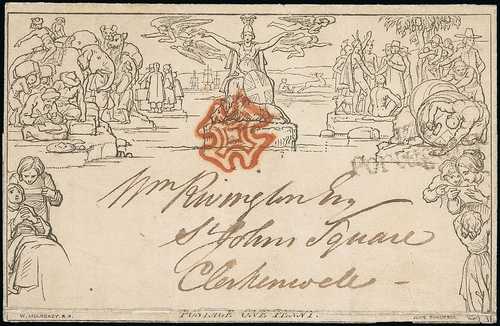 Wm Rivington Esq
St Johns Square
Clerkenwell
POSTAGE ONE PENNY.
W. MULREADY. R.A.
JOHN THOMPSON.